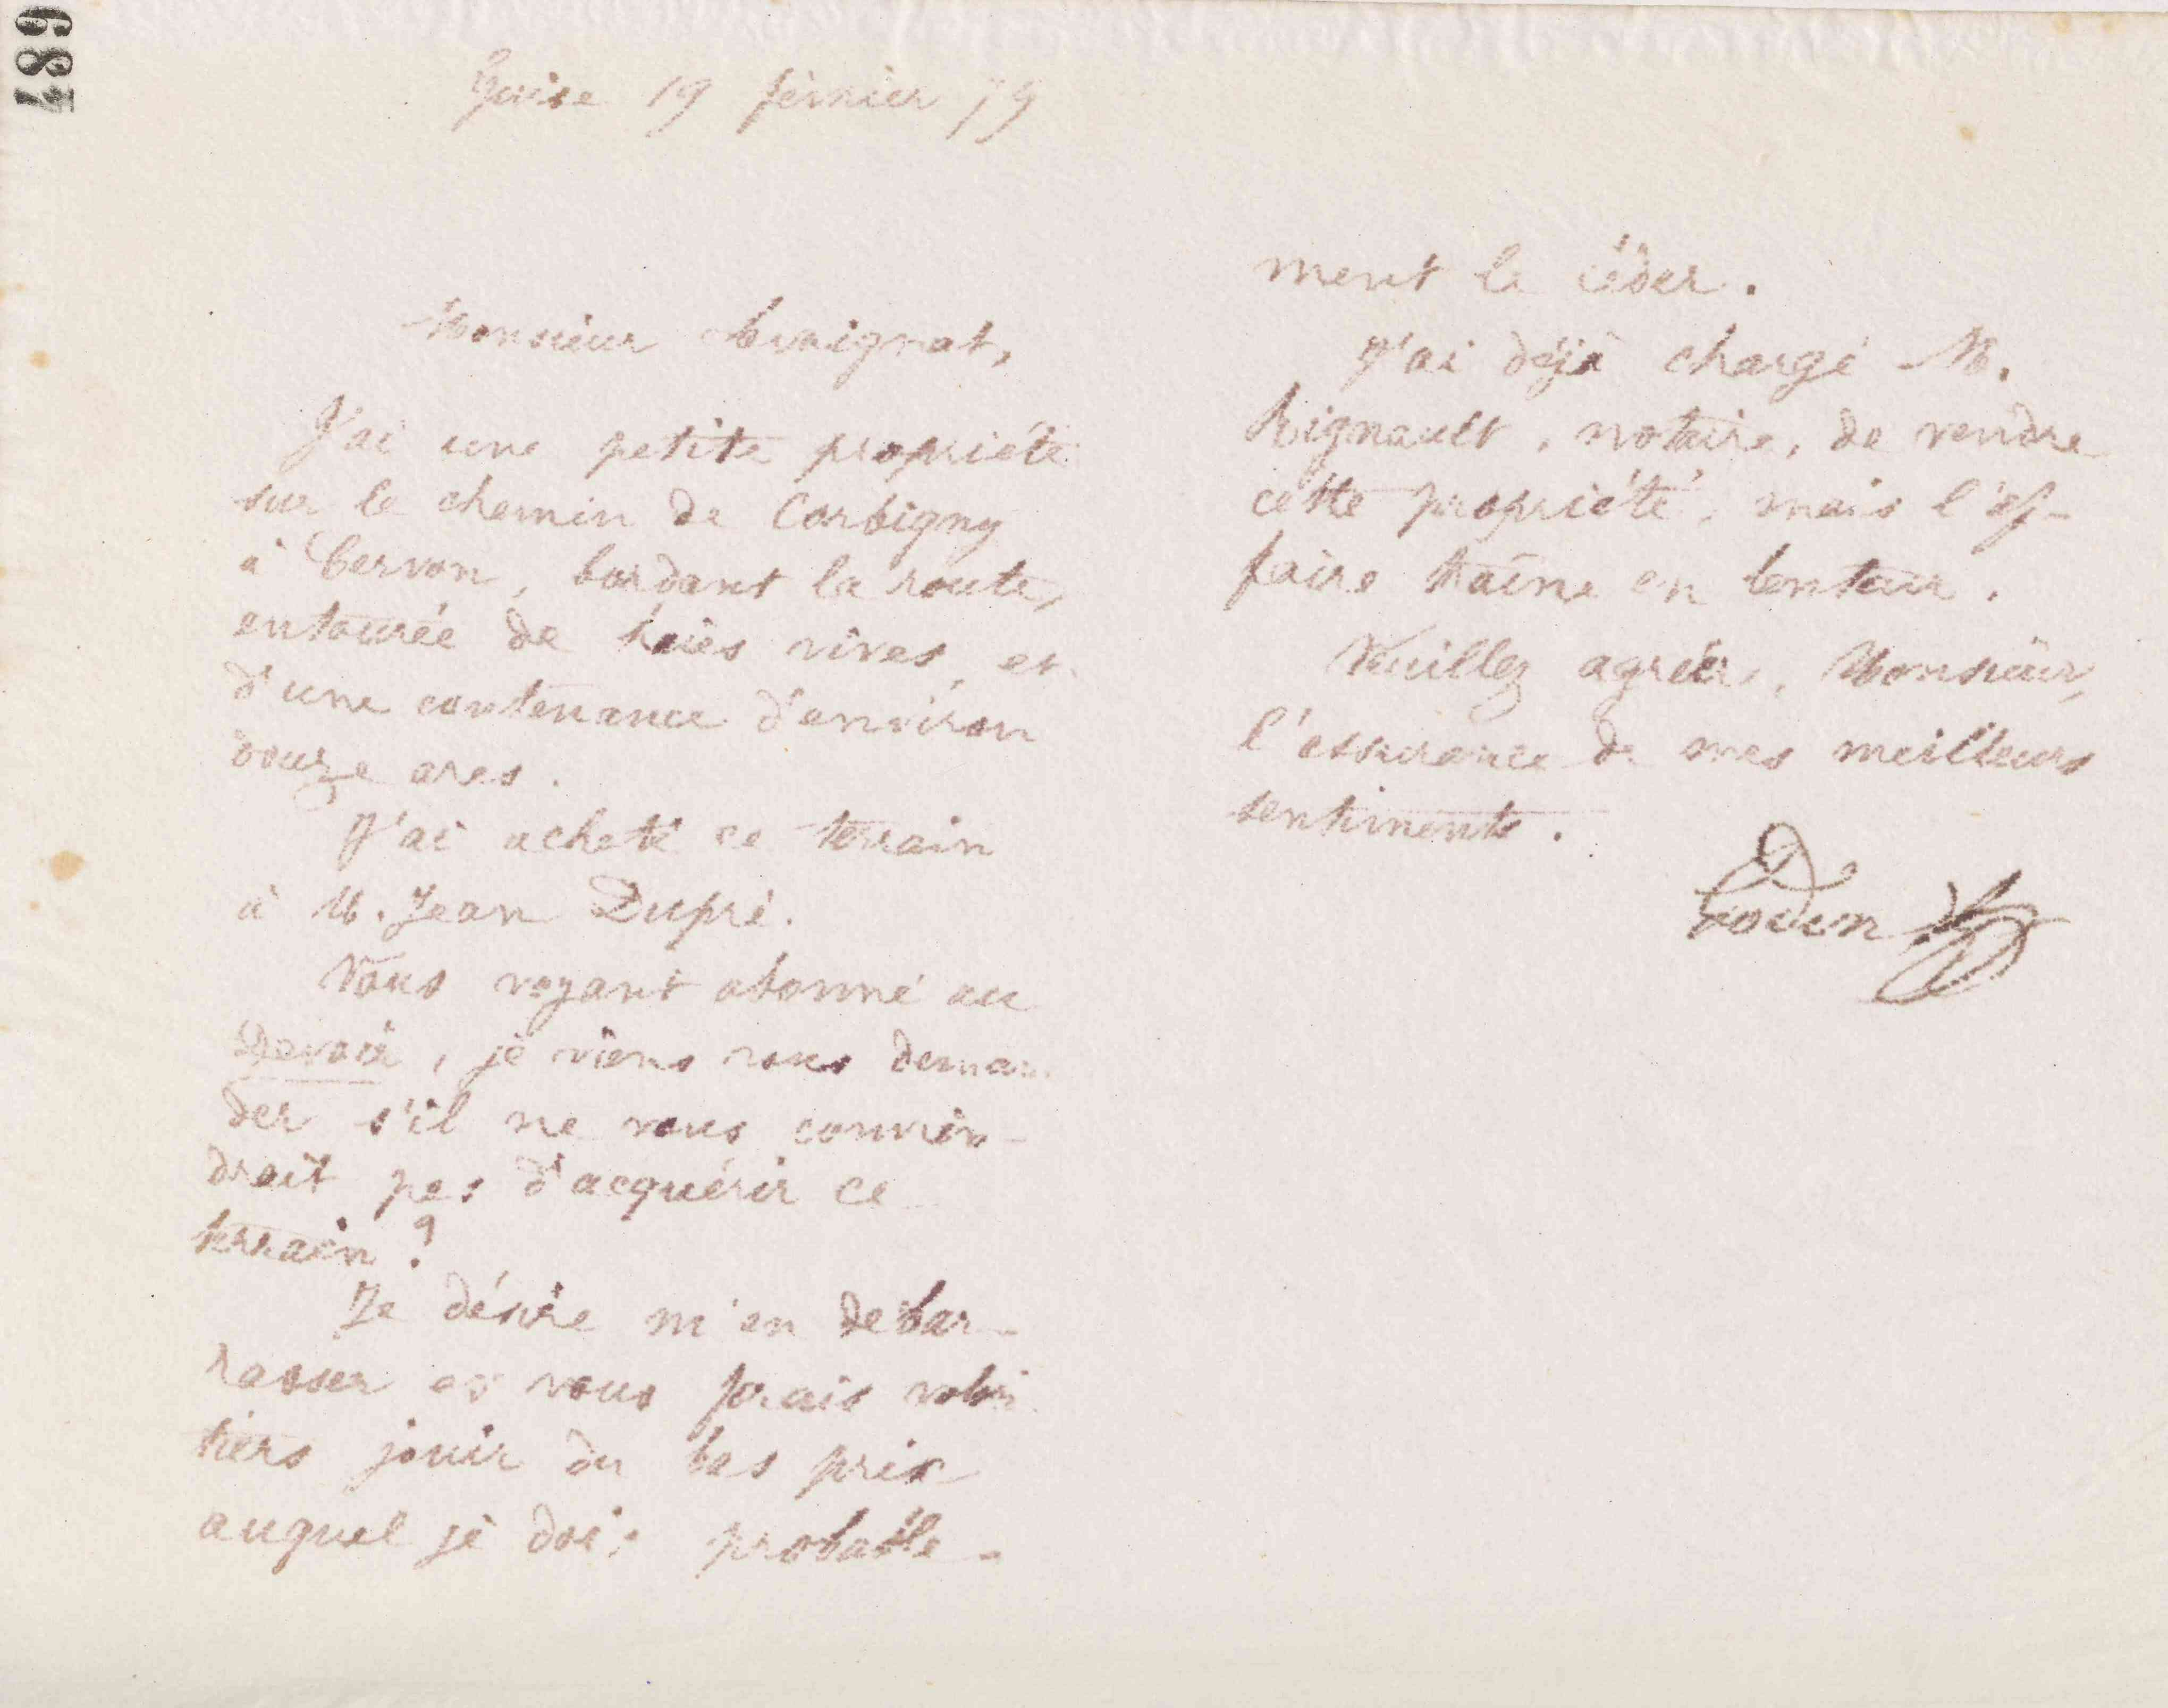 687
Guise 19 février 79
Monsieur
J'ai une petite propriété
sur le chemin de Corbigny
à Cervon, bordant la route,
entourée de haies vives, et
d'une contenance d'environ
douze ares.
J'ai acheté ce terrain
à M. Jean Dupré.
Vous voyant abonné au
Devoir, je viens vous deman
der s'il ne vous convien-
drait pas d'acquérir ce
terrain ?
Je désire m'en debar-
rasser et vous ferais volon
tiers jouir du bas prix
auquel je dois probable-
ment le céder.
J'ai déjà chargé M.
notaire, de vendre
cette propriété, mais l'af-
faire traîne en lenteur.
Veuillez agréer, Monsieur,
l'assurance de mes meilleurs
sentiments.
Godin